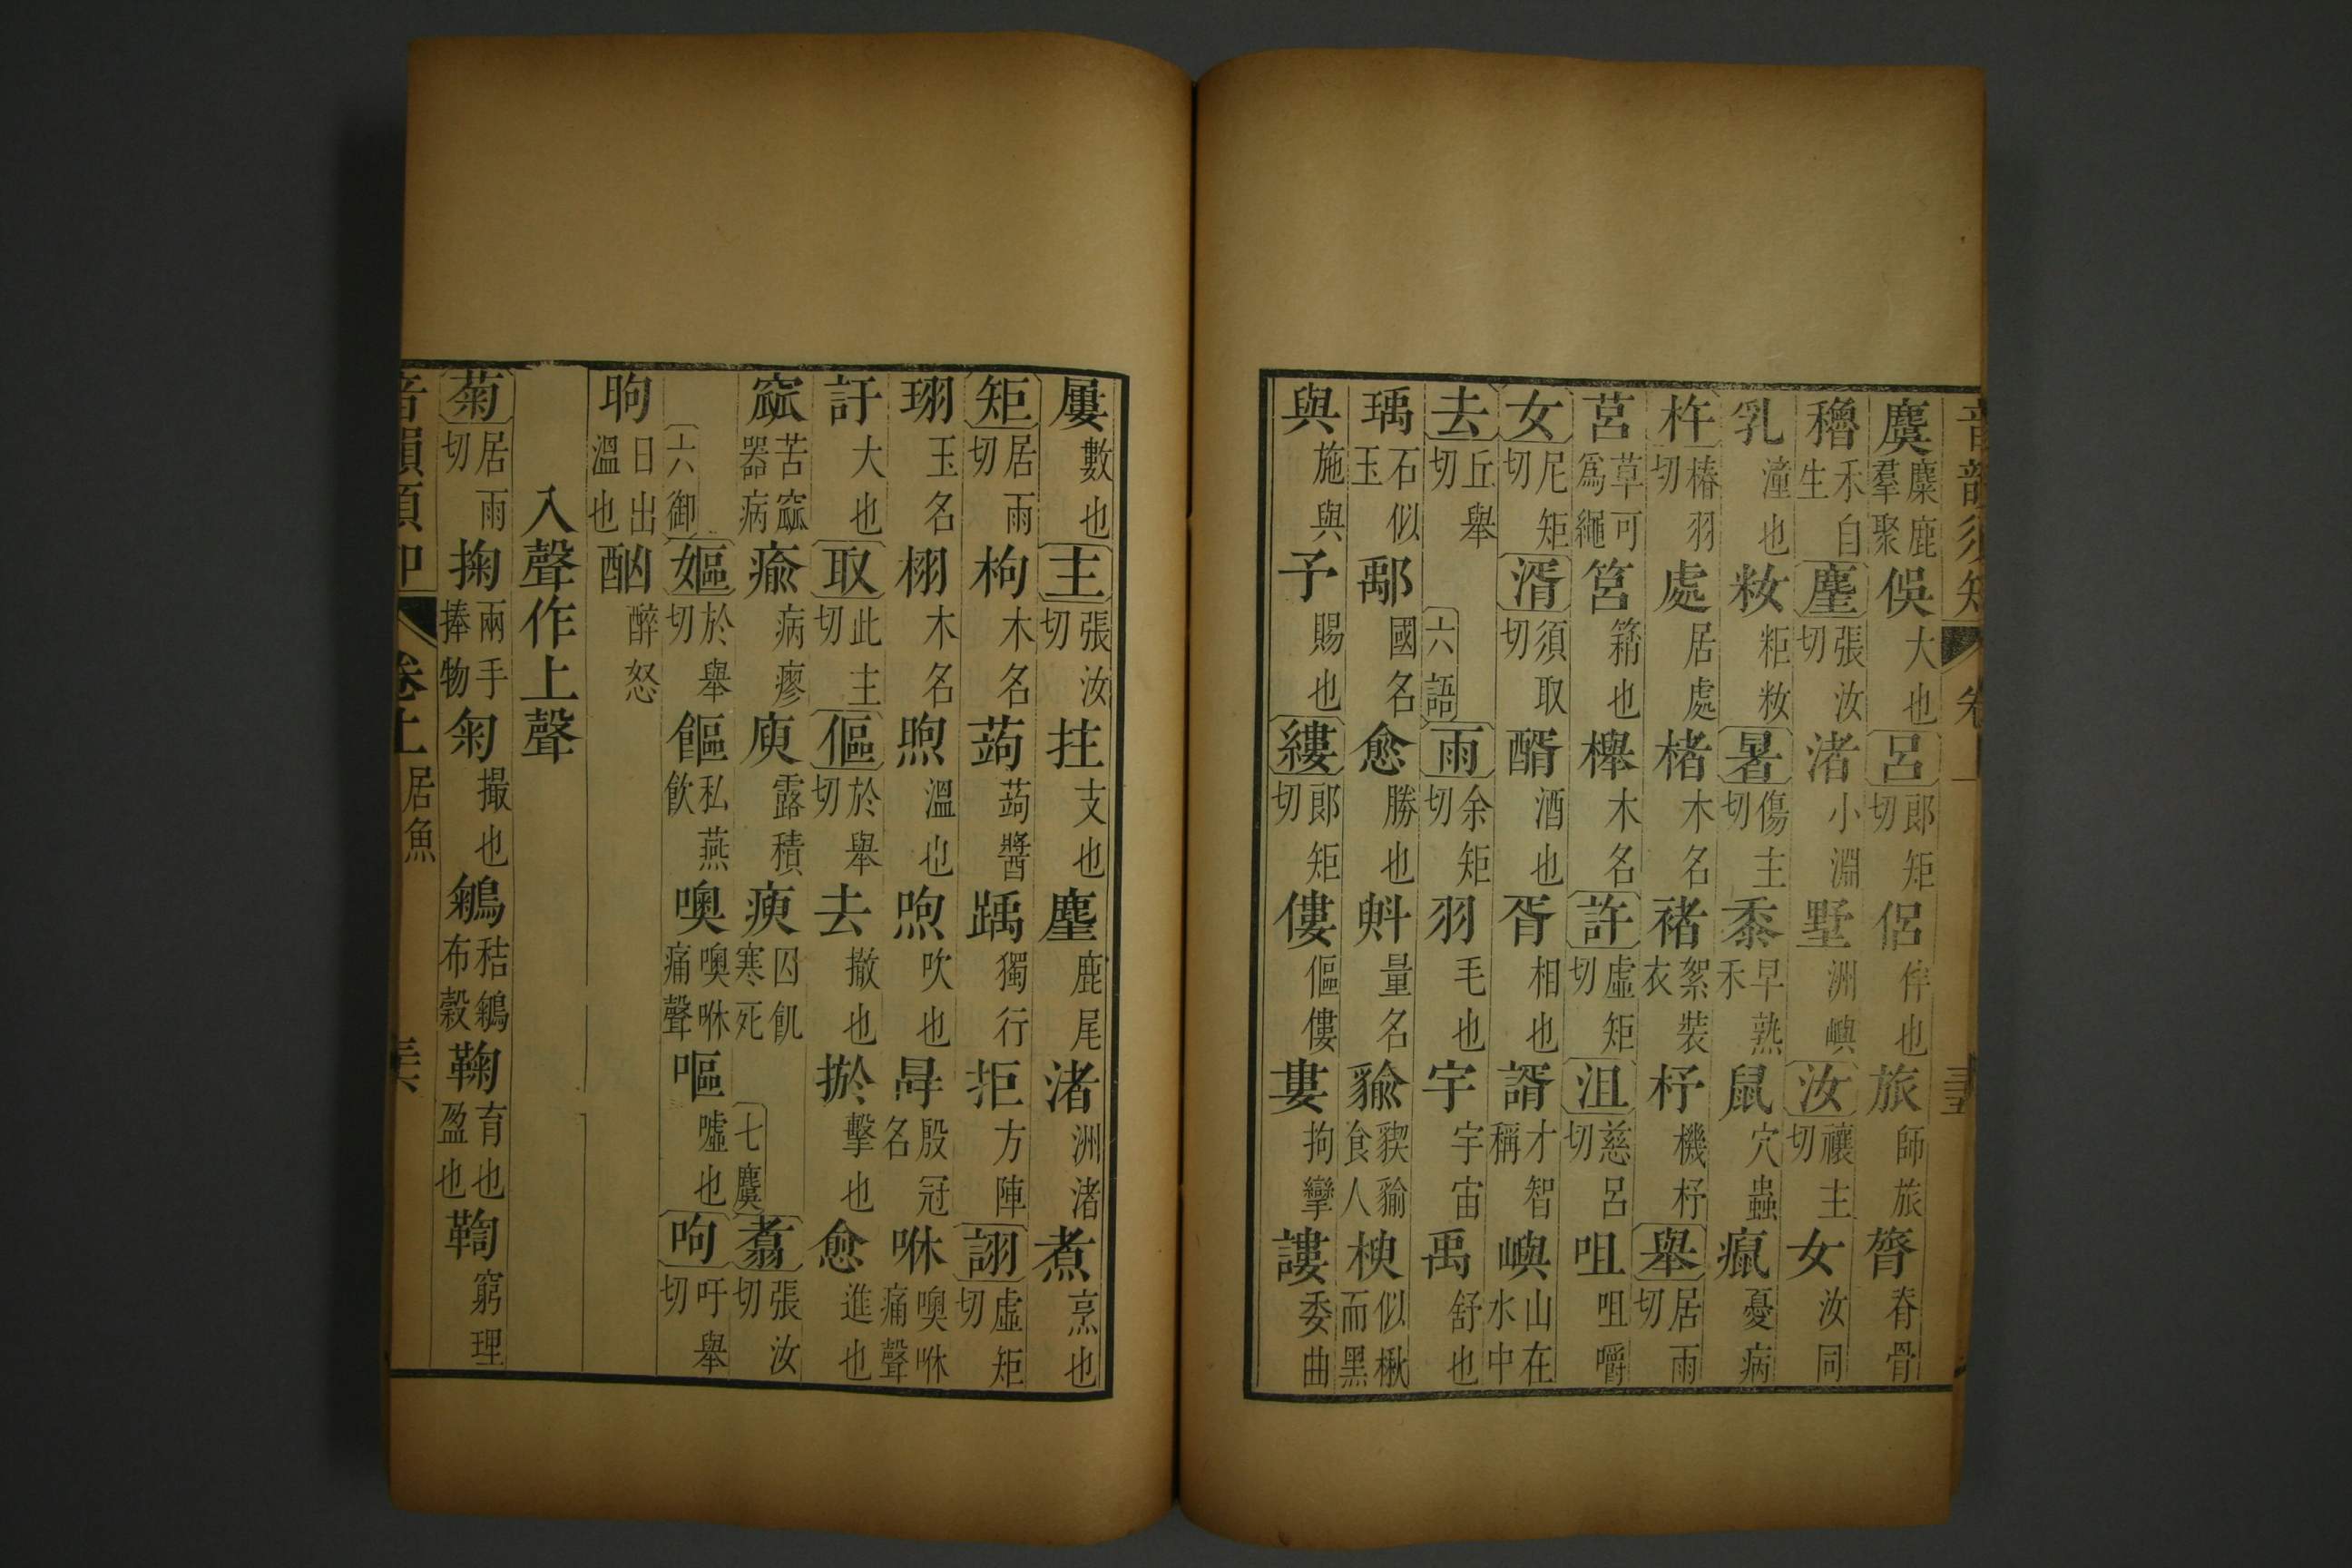 音韻須知 卷上
麌 麋鹿羣聚 俁 大也 呂 郎矩切 侶 伴也 旅 師旅 膂 脊骨
穭 禾自生 麈 張汝切 渚 小淵 墅 洲嶼 汝 禳主切 女 汝同
乳 潼也 籹 粔籹 暑 傷主切 黍 早熟禾 鼠 穴蟲 癙 憂病
杵 椿羽切 處 居處 楮 木名 褚 絮裝衣 杼 機杼 舉 居雨切
莒 草可爲繩 筥 籍也 櫸 木名 許 虛矩切 沮 慈呂切 咀 咀嚼
女 尼矩切 湑 須取切 醑 酒也 胥 相也 諝 才智稱 嶼 山在水中
去 丘舉切 六語 雨 余矩切 羽 毛也 宇 宇宙 禹 舒也
瑀 石似玉 鄅 國名 愈 勝也 㪺 量名 貐 猰貐食人 楰 似楸而黑
與 施與 予 賜也 縷 郎矩切 僂 傴僂 婁 拘攣 謱 委曲
屢 數也 主 張汝切 拄 支也 麈 鹿尾 渚 洲渚 煮 烹也
矩 居雨切 枸 木名 蒟 蒟醬 踽 獨行 拒 方陣 詡 虛矩切
珝 玉名 栩 木名 煦 溫也 喣 吹也 冔 殷冠名 咻 噢咻痛聲
訏 大也 取 此主切 傴 於舉切 去 撤也 㧒 擊也 愈 進也
窳 苦窳器病 瘉 病瘳 庾 露積 瘐 囚飢寒死 七麌 翥 張汝切
六御 嫗 於舉切 饇 私燕飲 噢 噢咻痛聲 嘔 噓也 呴 吁舉切
昫 日出溫也 酗 醉怒
入聲作上聲
菊 居雨切 掬 兩手捧物 匊 撮也 鵴 秸鵴布穀 鞠 育也盈也 鞫 窮理
音韻須知 卷上 居魚